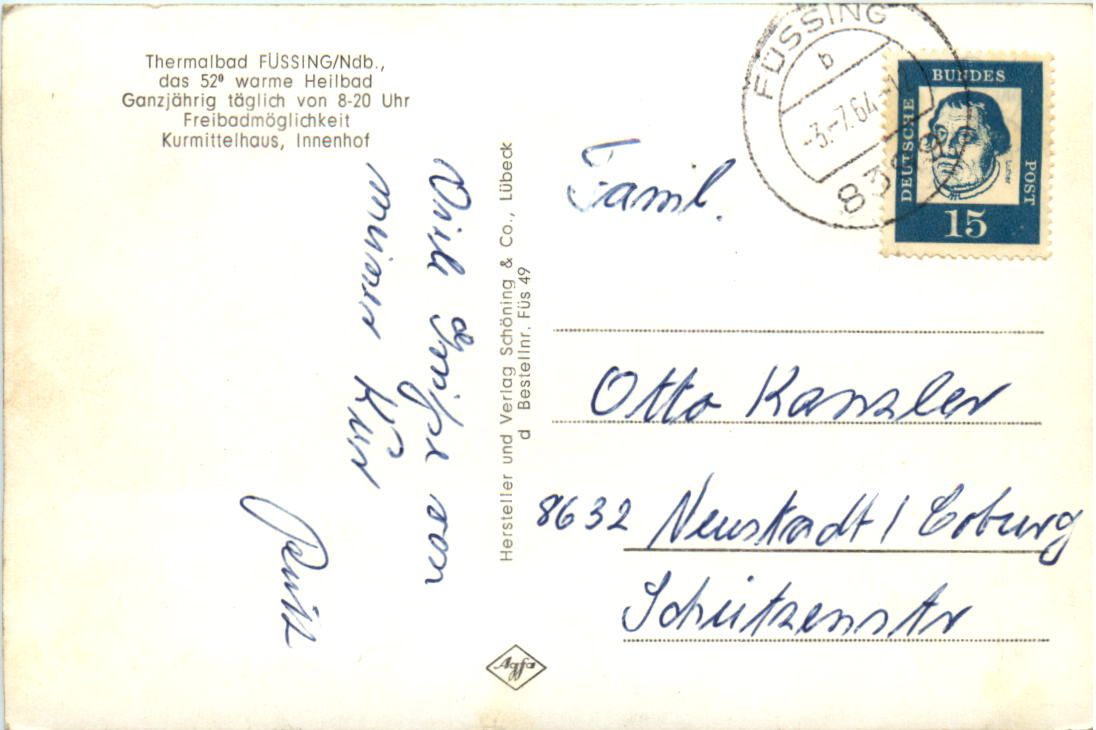 Thermalbad FÜSSING/Ndb.,
das 52º warme Heilbad
Ganzjährig täglich von 8-20 Uhr
Freibadmöglichkeit
Kurmittelhaus, Innenhof
Viele Grüße von
meiner Kur
Hersteller und Verlag Schöning & Co., Lübeck
d Bestellnr. Füs 49
FÜSSING
b
-3.-7.64-1
DEUTSCHE
BUNDES
POST
Luther
15
Famil.
Otto Kanzler
8632 Neustadt / Coburg
Schützenstr
Agfa